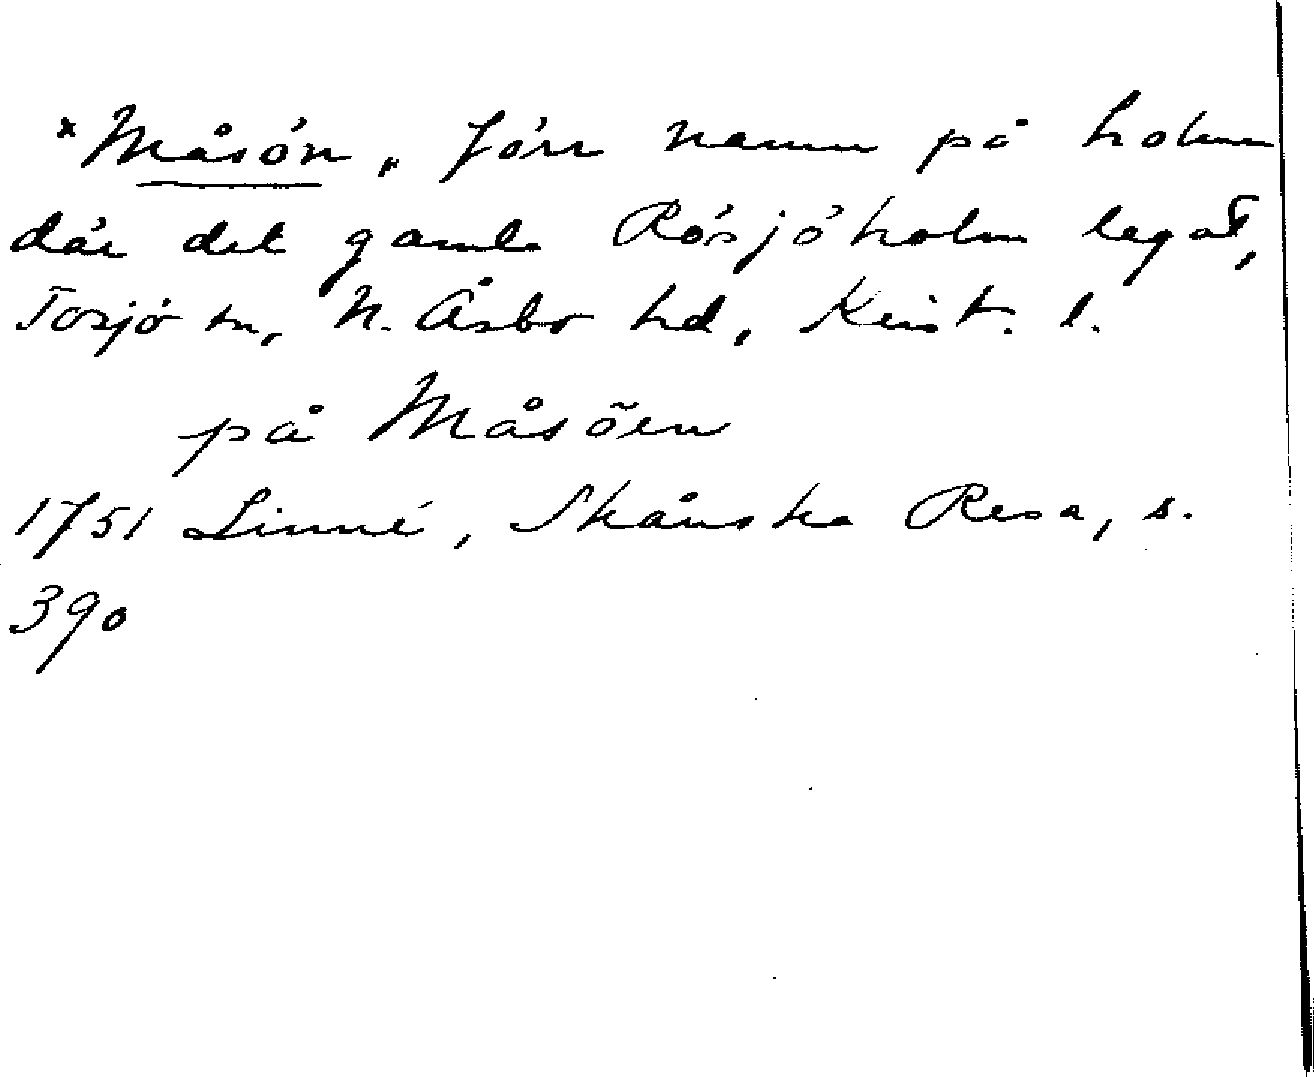 *Måsön, förr namn på holm
där det gamla Rösjöholm legat,
Tosjö sn, N. Åsbo hd, Krist. l.
på Måsöen
1751 Linné, Skånska Resa, s.
390